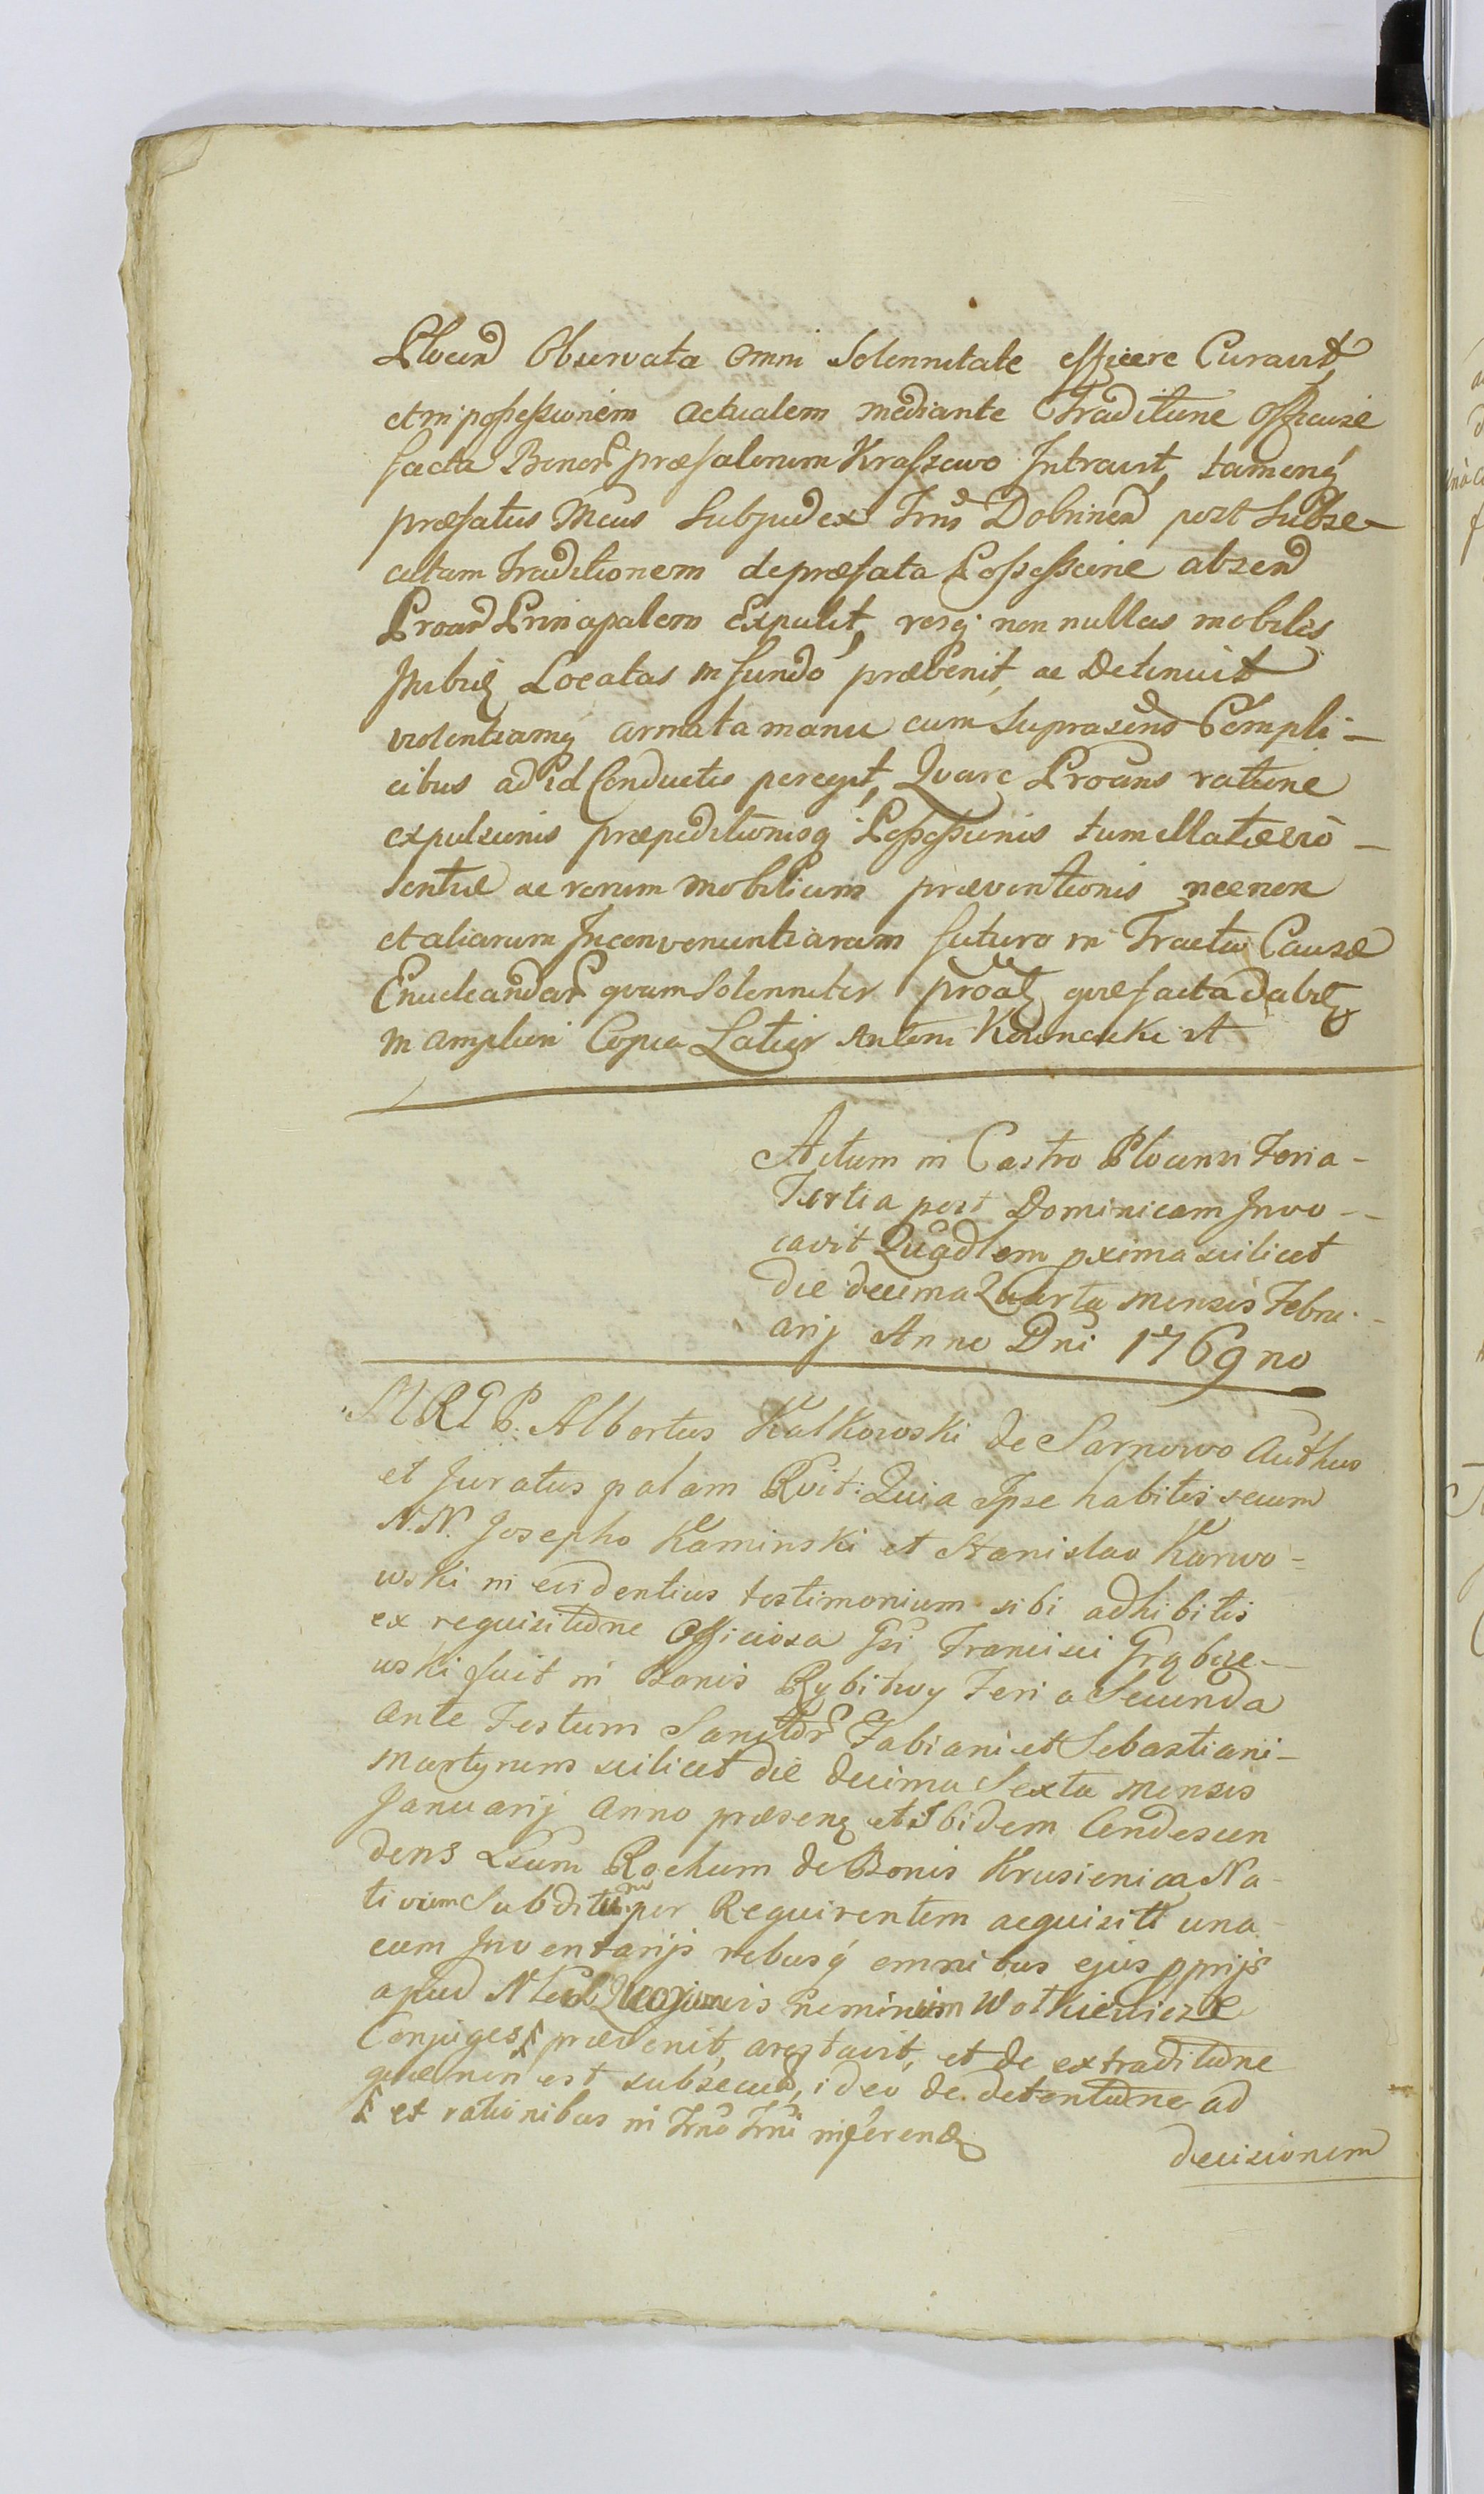 Plocen Observata Omni Solennitate efficere Curavit,
et in possessionem Actualem mediante Traditione Officiose
facta Bonor præfatorum Kraszewo Intravit, tamenq
præfatus Mcus Subjudex Trris Dobrinen post Subse-
cutam Traditionem de præfata Possessione absen
Proan Principalem Expulit, resq non nullas mobiles
Locatas in fundo prævenit, ac Detinuit
violentiamq armata manu cum Suprascrip Compli-
cibus ad id Conductis peregit, Quare Proans ratione
expulsionis præpeditionisq Possessionis tum illatæ vio-
lentiæ ac rerum mobilium præventionis necnon
et aliarum Inconvenientiarum futuro in Tractu Causæ
Enucleandar quam Solenniter proat, quæ facta dabit
in ampliori Copia Latior Antoni Kownacki
Actum in Castro Plocensi Feria-
Tertia post Dominicam Invo--
cavit Quadlem pxima scilicet
die decima Quarta mensis Febru-
arij Anno Dni 1769no
MRGP. Albertus Kalkowski de Sarnowo Authus
et Juratus palam Rvit: Quia Ipse habitis secum
N.N. Josepho Kaminski et Stanislao Karwo-
wski in evidentius testimonium sibi adhibitis
ex requisitione Officiosa Gsi Francisci Grąbcze-
wski fuit in Bonis Rybitwy Feria Secunda
Ante Festum Sanctor Fabiani et Sebastiani-
Martyrum scilicet die decima Sexta mensis
Januarij Anno præsenq et Ibidem Condescen
dens Lsum Rochum de Bonis Krusienica Na-
tivum Subditum per Requirentem acquisit una
cum Inventarijs rebusq omnibus ejus pprijs
apud Nominum Wotkiewicze
Conjuges prævenit, arestavit, et de extraditione
quæ non est subsecuta, ideo de detentione ad
et rationibus in Trno Trni inferend
decisionem